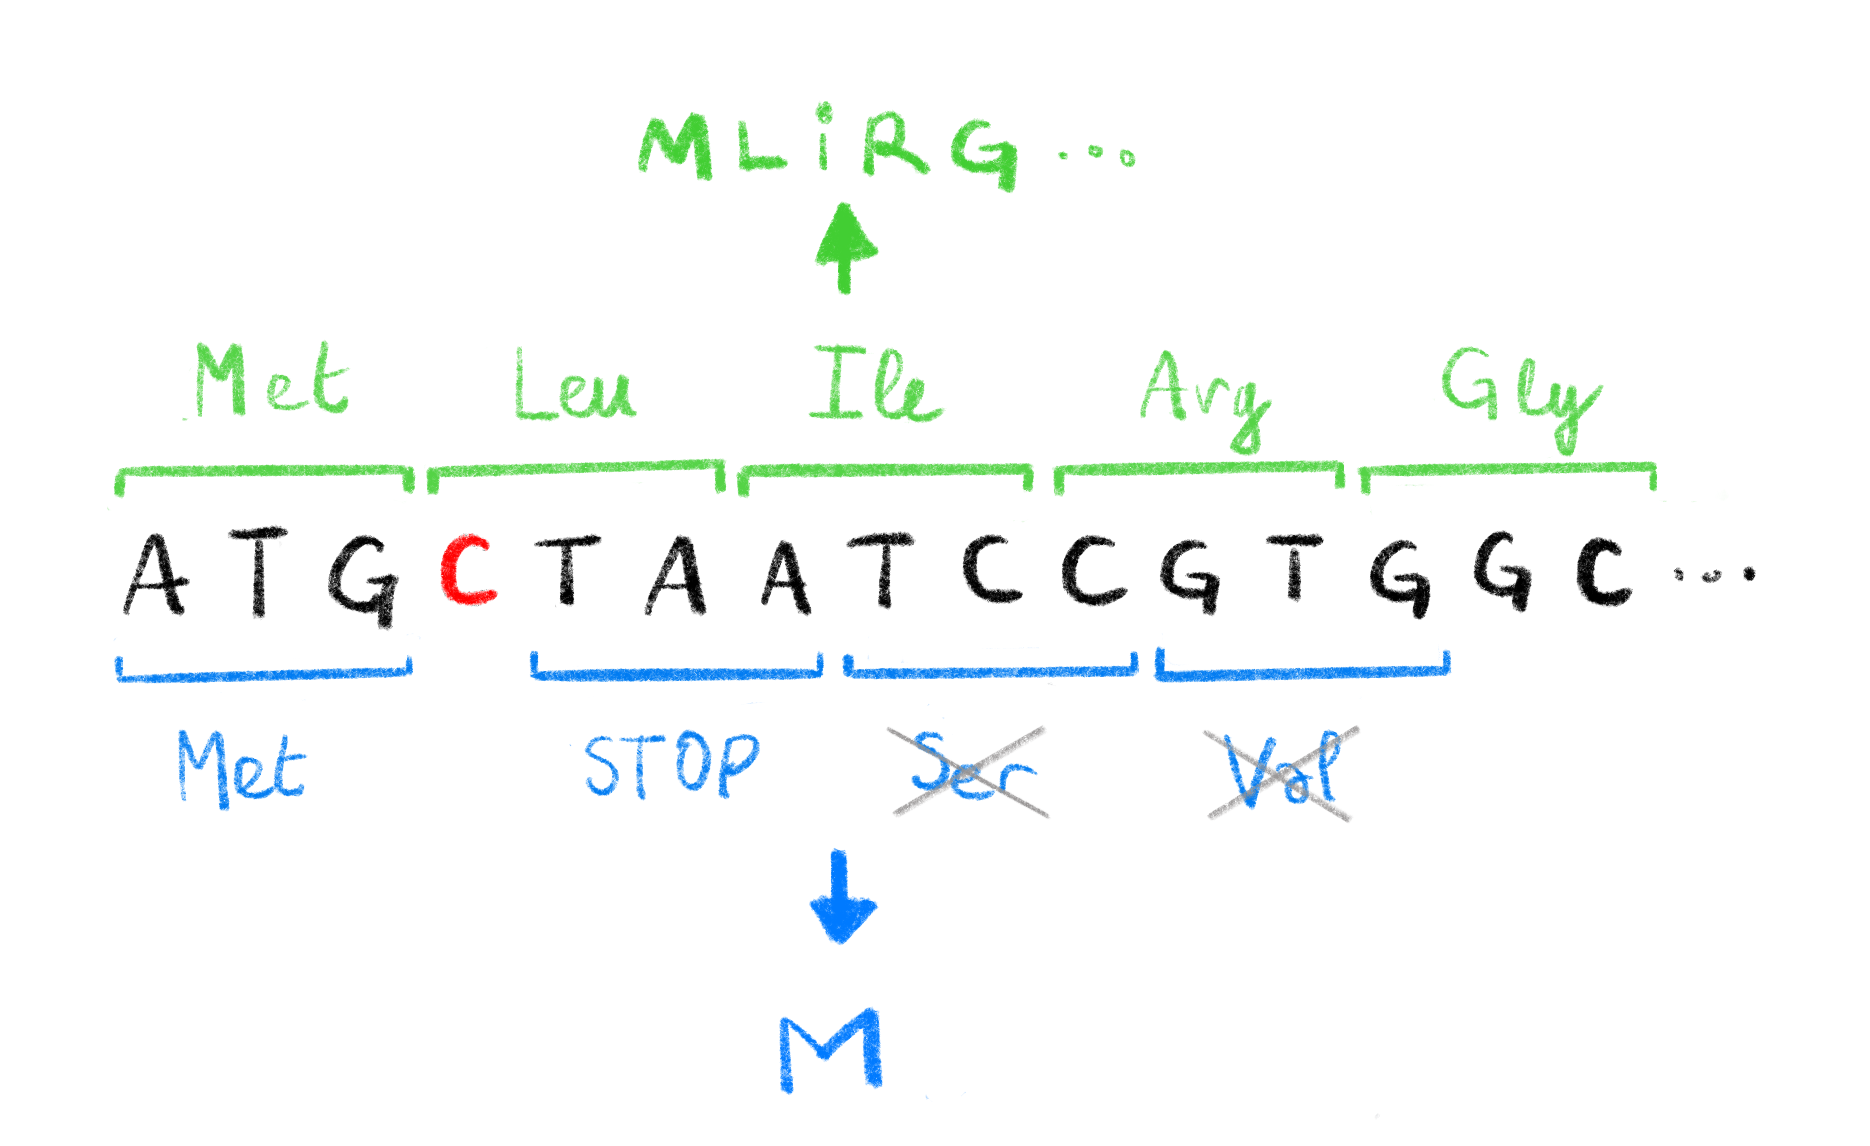 MLiRG...
Met Leu Ile Arg Gly
ATGCTAATCCGTGGC...
Met STOP Ser Val
M